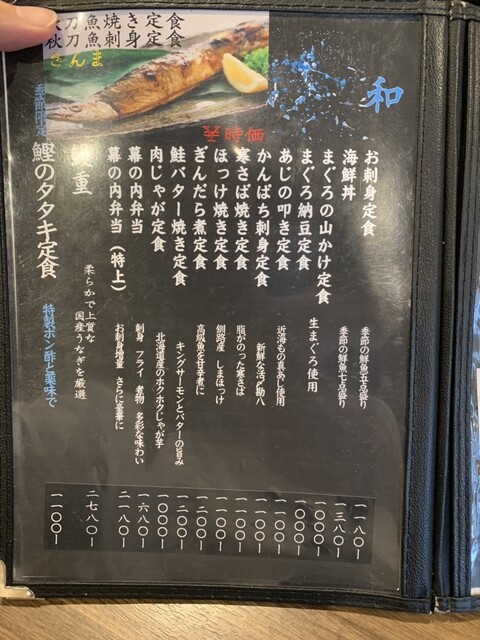 刀魚焼き定食
秋刀魚刺身定食
さんま
和
お刺身定食 季節の鮮魚五点盛り 一一八〇ー
海鮮丼 季節の鮮魚七点盛り 一三八〇ー
まぐろの山かけ定食 一〇〇〇ー
生まぐろ使用
まぐろ納豆定食 一〇〇〇ー
あじの叩き定食 近海もの真あじ使用 一〇〇〇ー
かんぱち刺身定食 新鮮な活〆勘八 一一〇〇ー
寒さば焼き定食 脂がのった寒さば 一一〇〇ー
ほっけ焼き定食 釧路産 しまほっけ 一一〇〇ー
ぎんだら煮定食 高級魚を甘辛煮に 一二〇〇ー
鮭バター焼き定食 キングサーモンとバターの旨み 一二〇〇ー
肉じゃが定食 北海道産のホクホクじゃが芋 一〇〇〇ー
幕の内弁当 刺身 フライ 煮物 多彩な味わい 一六八〇ー
幕の内弁当（特上） お刺身増量 さらに豪華に 二一八〇ー
重 柔らかで上質な
国産うなぎを厳選 二七八〇ー
季節限定
鰹のタタキ定食 特製ポン酢と薬味で 一一〇〇ー